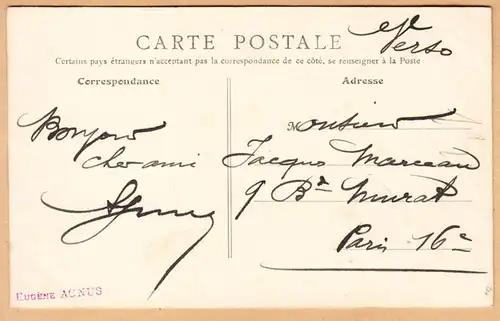 et
Verso
CARTE POSTALE
Certains pays étrangers n'acceptant pas la correspondance de ce côté, se renseigner à la Poste
Correspondance
Adresse
Bonjour
cher ami
Agnus
Monsieur
Jacques Marceau
9 Bd Murat
Paris 16e
EUGÈNE AGNUS